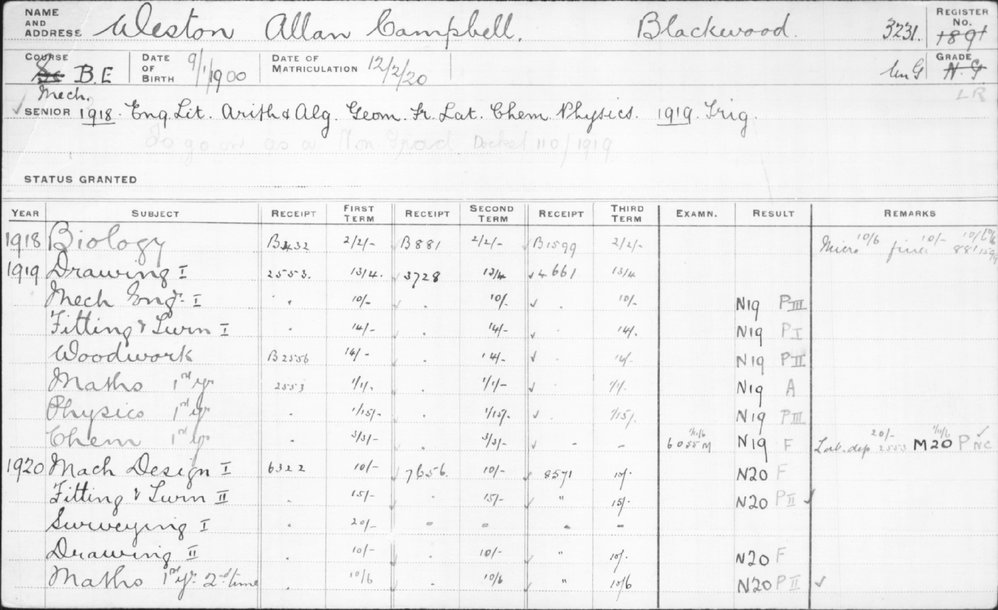 NAME AND ADDRESS Weston Allan Campbell. Blackwood. 3231. REGISTER No. 1891
COURSE Sc B.E Mech. DATE OF BIRTH 9/1/1900 DATE OF MATRICULATION 12/2/20 Un G GRADE N.G LR
SENIOR 1918. Eng. Lit. Arith & Alg. Geom. Fr. Lat. Chem. Physics. 1919. Trig.
To go on as a Non Grad Docket 110/1919
STATUS GRANTED
YEAR SUBJECT RECEIPT FIRST TERM RECEIPT SECOND TERM RECEIPT THIRD TERM EXAMN. RESULT REMARKS
1918 Biology B432 2/2/- B881 2/2/- B1599 2/2/- Micro 10/6 10/- 10/6
1919 Drawing I 2553. 13/4. 3728 13/4 4661 13/4
Mech Eng. I " 10/- 10/- " 10/- N19 PIII
Fitting & Turn I " 14/- 14/- " 14/. N19 PI
Woodwork B2556 14/- 14/- " 14/- N19 PII
Maths 1st yr 2553 1/1/. 1/1/- " 1/1/. N19 A
Physics 1st yr " 1/15/- 1/15/- " 1/15/. N19 PIII
Chem 1st yr " 3/3/- 3/3/- " " 6055M N19 F Lab. dep 20/- 2553 M20 P NC
1920 Mach Design I 6322 10/- 7656. 10/- 8571 10/- N20 F
Fitting & Turn II 15/- " 15/- " 15/- N20 PII ✓
Surveying I 20/- " " " "
Drawing II . 10/- 10/- " 10/- N20 F
Maths 1st yr. 2nd time 10/6 10/6 " 10/6 N20 PII ✓